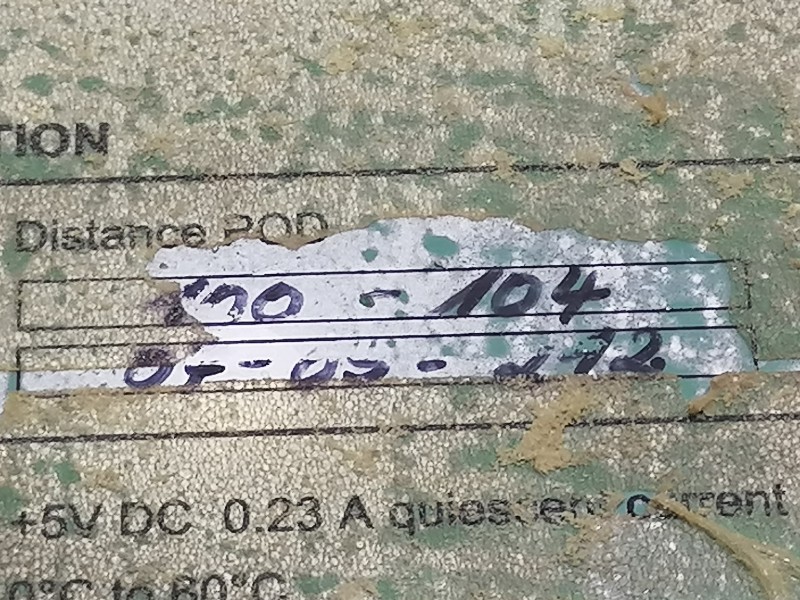 TION
Distance POD
100 - 104
+5V DC 0.23 A quiescent current
0°C to 60°C